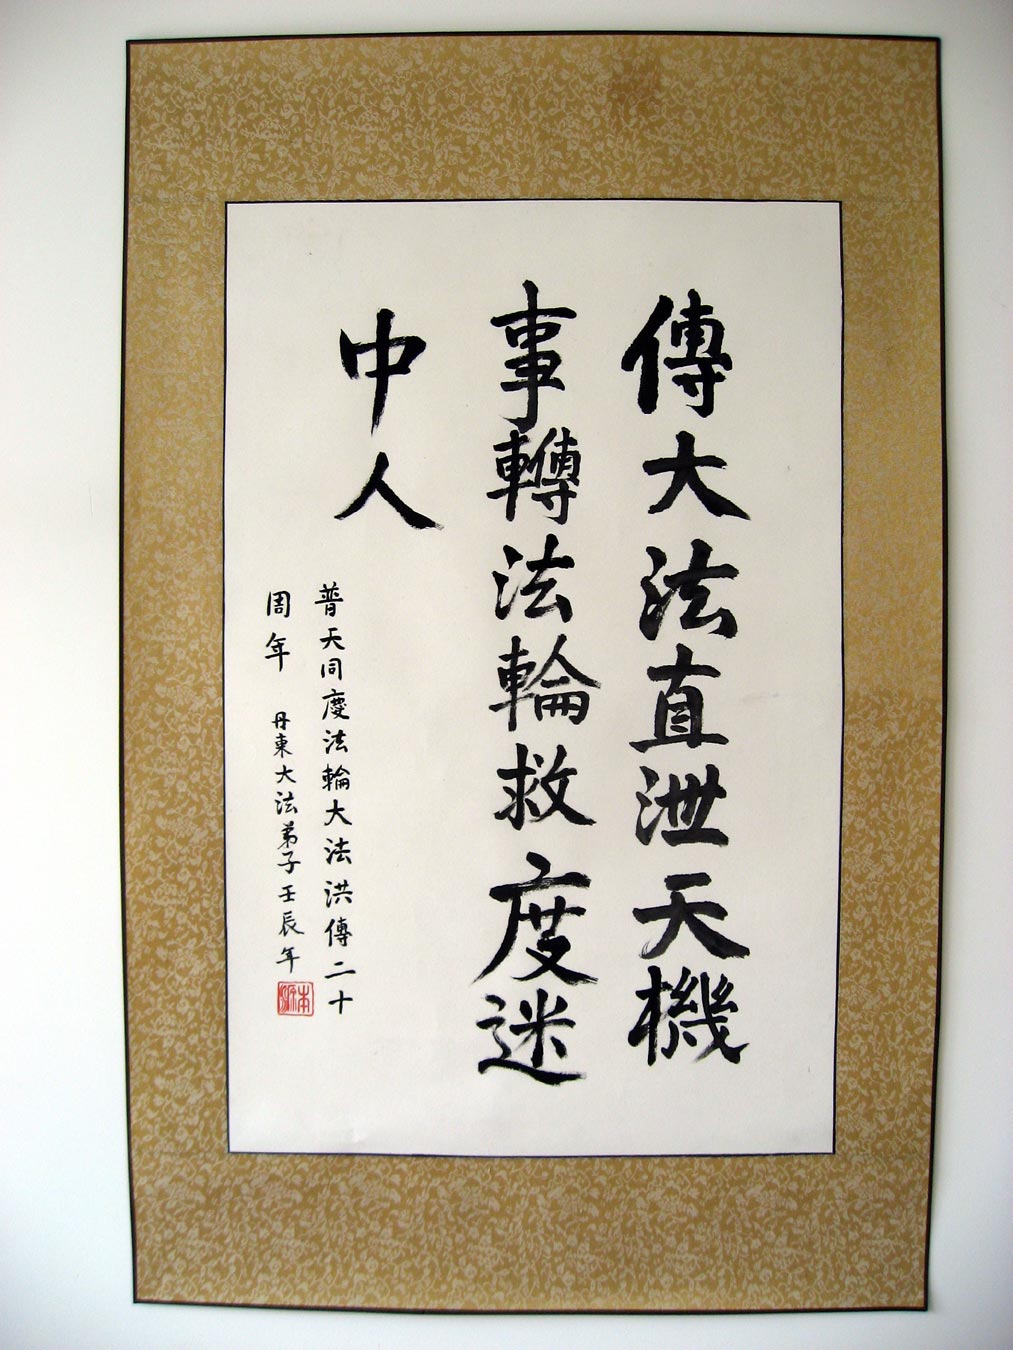 傳大法直泄天機
事轉法輪救度迷
中人
普天同慶法輪大法洪傳二十
周年
丹東大法弟子壬辰年